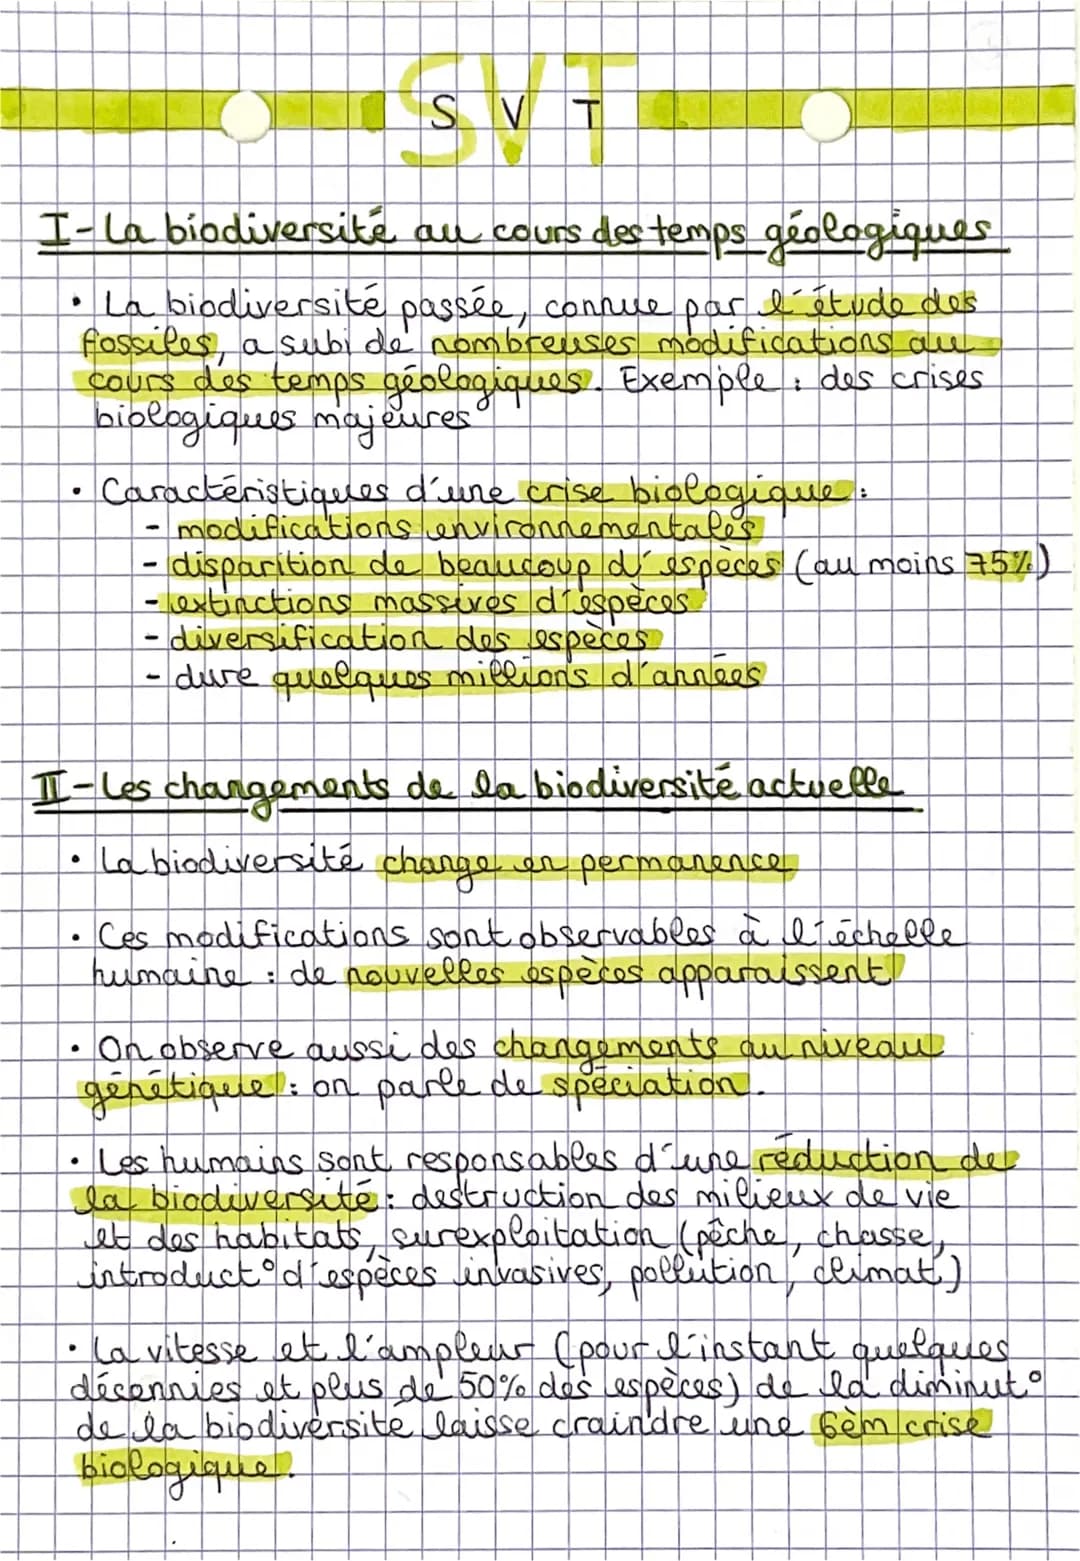 SVT
S V T
I-La biodiversité au cours des temps géologiques
• La biodiversité passée, connue par l'étude des
fossiles, a subi de nombreuses modifications au
cours des temps géologiques. Exemple : des crises
biologiques majeures
• Caractéristiques d'une crise biologique :
- modifications environnementales
- disparition de beaucoup d'espèces (au moins 75%)
- extinctions massives d'espèces
- diversification des espèces
- dure quelques millions d'années
II-Les changements de la biodiversité actuelle
• La biodiversité change en permanence
• Ces modifications sont observables à l'échelle
humaine : de nouvelles espèces apparaissent
• On observe aussi des changements au niveau
génétique : on parle de spéciation.
• Les humains sont responsables d'une réduction de
la biodiversité : destruction des milieux de vie
et des habitats, surexploitation (pêche, chasse,
introduct° d'espèces invasives, pollution, climat)
• La vitesse et l'ampleur (pour l'instant quelques
décennies et plus de 50% des espèces) de la diminut°
de la biodiversité laisse craindre une 6èm crise
biologique.